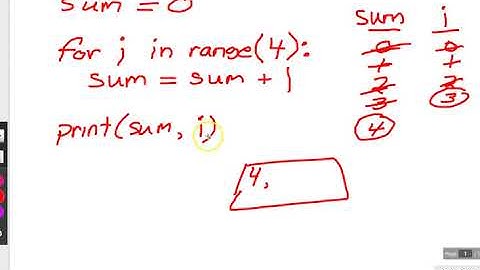 sum = 0
for i in range(4):
sum = sum + 1
print(sum, i)
sum i
0 0
1 1
2 2
3 3
4
4,